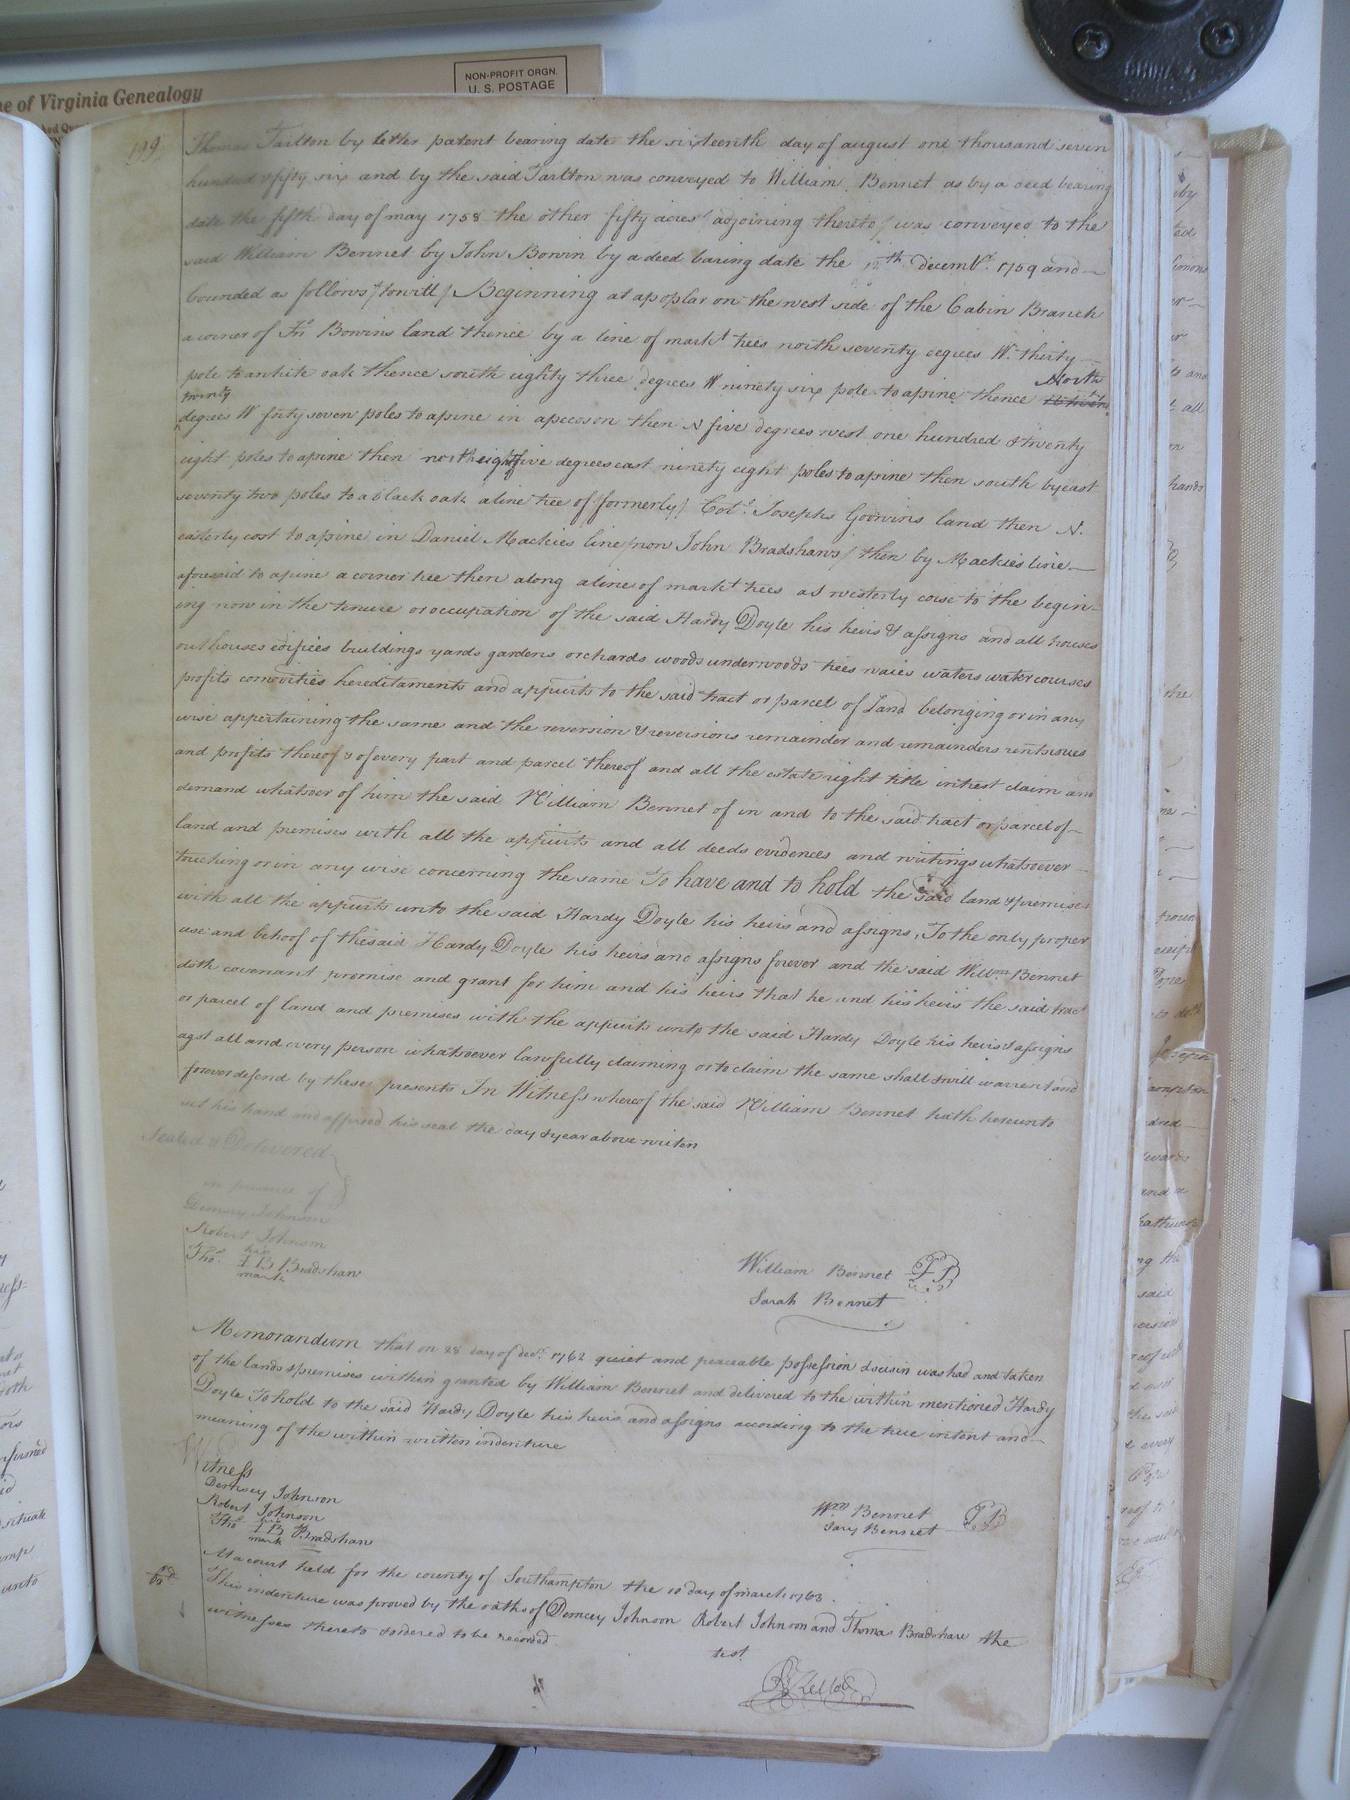 ne of Virginia Genealogy
NON-PROFIT ORGN.
U. S. POSTAGE
199
Thomas Tarlton by letter patent bearing date the sixteenth day of august one thousand seven
hundred & fifty six and by the said Tarlton was conveyed to William Bennet as by a deed bearing
date the fifth day of may 1758 the other fifty acres adjoining thereto was conveyed to the
said William Bennet by John Bowin by a deed baring date the 12th decembr. 1759 and
bounded as follows / towitt / Beginning at a poplar on the west side of the Cabin Branch
a corner of Jno. Bowins land thence by a line of markt trees north seventy degrees W. thirty
pole to a white oak thence south eighty three degrees W ninety six pole to a pine thence North
twenty
degrees W forty seven poles to a pine in a pecoson then N five degrees west one hundred & twenty
eight poles to a pine then north eighty five degrees east ninety eight poles to a pine then south by east
seventy two poles to a black oak a line tree of / formerly / Colo. Josephs Goodwins land then N.
easterly cost to a pine in Daniel Mackies line / now John Bradshaws / then by Mackies line
aforesaid to a pine a corner tree then along a line of markt trees as westerly corse to the begin-
ing now in the tenure or occupation of the said Hardy Doyle his heirs & assigns and all houses
outhouses edifices buildings yards gardens orchards woods underwoods trees waies waters watercourses
profits comodities hereditaments and appurts to the said tract or parcel of Land belonging or in any
wise appertaining the same and the reversion & reversions remainder and remainders rents issues
and profits thereof & of every part and parcel thereof and all the estate right title intrest claim and
demand whatsoer of him the said William Bennet of in and to the said tract or parcel of
land and premises with all the appurts and all deeds evidences and writings whatsoever
touching or in any wise concerning the same To have and to hold the said land & premises
with all the appurts unto the said Hardy Doyle his heirs and assigns, To the only proper
use and behoof of the said Hardy Doyle his heirs and assigns forever and the said Willm Bennet
doth covenant promise and grant for him and his heirs that he and his heirs the said tract
or parcel of land and premises with the appurts unto the said Hardy Doyle his heirs & assigns
agst all and every person whatsoever lawfully claiming or to claim the same shall & will warrent and
forever defend by these presents In Witness whereof the said William Bennet hath hereunto
set his hand and affixed his seal the day & year above writen
Sealed & Delivered
in presence of
Demcey Johnson
Robert Johnson
his
Thos. TB Bradshaw
mark
William Bennet
Sarah Bennet
Memorandum that on 28 day of decr. 1762 quiet and peaceable possession & seisin was had and taken
of the lands & premises within granted by William Bennet and delivered to the within mentioned Hardy
Doyle To hold to the said Hardy Doyle his heirs and assigns according to the true intent and
meaning of the within written indenture
Witness
Demcey Johnson
Robert Johnson
his
Thos. TB Bradshaw
mark
Wm Bennet
Sary Bennet
At a court held for the county of Southampton the 10 day of march 1763.
This indenture was proved by the oaths of Demcey Johnson Robert Johnson and Thomas Bradshaw the
witnesses thereto & ordered to be recorded
test
RKello